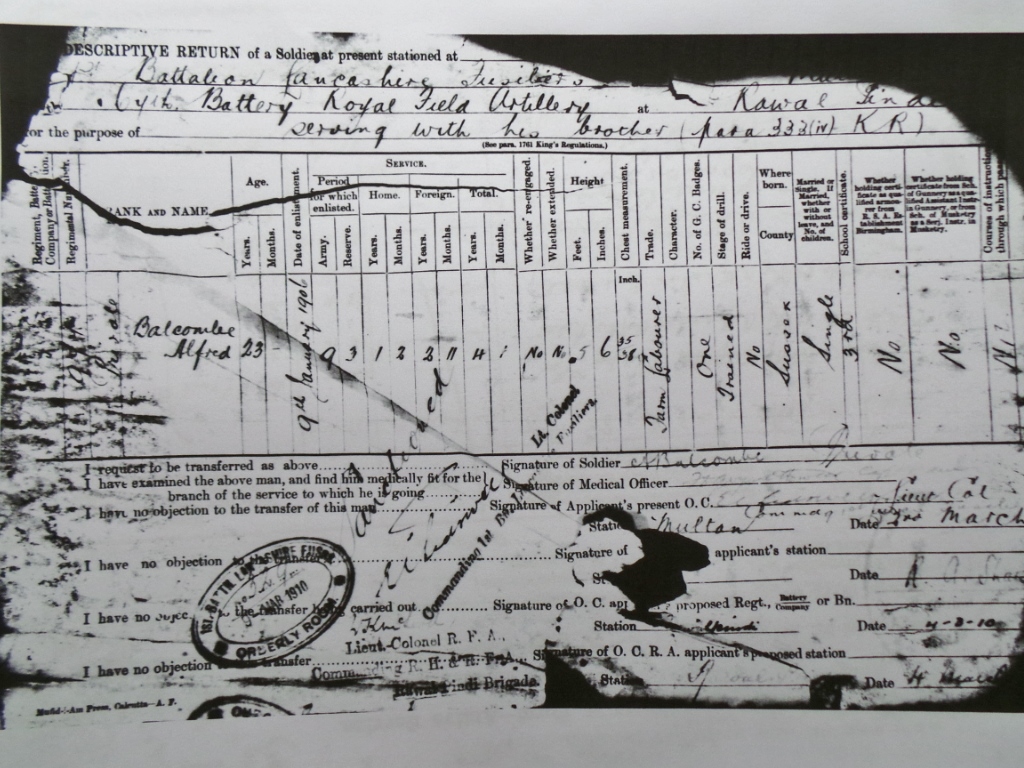 DESCRIPTIVE RETURN of a Soldier at present stationed at
Battalion Lancashire Fusiliers
Battery Royal Field Artillery at Rawal Pinde
for the purpose of serving with his brother (para 333 (iv) KR)
(See para. 1761 King's Regulations.)
Regimental Number.
RANK AND NAME
Age.
Years.
Months.
Date of enlistment.
SERVICE.
Period for which enlisted.
Army.
Reserve.
Home.
Years.
Months.
Foreign.
Years.
Months.
Total.
Years.
Months.
Whether re-engaged.
Whether extended.
Height
Feet.
Inches.
Chest measurement.
Inch.
Trade.
Character.
No. of G. C. Badges.
Stage of drill.
Ride or drive.
Where born.
County
Married or Single, If Married, whether with or without leave, and No. of children.
School certificate.
Whether holding certificate as qualified armourer from R. S. A. Establishment Birmingham.
Whether holding certificate from Sch. of Gunnery as a qualified Assistant Instr. in Gunnery, or from Sch. of Musketry as a Sergt. Instr. in Musketry.
Courses of instruction through which passed
Private
Balcombe Alfred 23 9th January 1906 9 3 1 2 2 11 4 1 No No 5 6 35 38 Farm Labourer One Trained No Sussex Single 3rd No No Nil
I request to be transferred as above Signature of Soldier A Balcombe
I have examined the above man, and find him medically fit for the Signature of Medical Officer
branch of the service to which he is going
I have no objection to the transfer of this man Signature of Applicant's present O. C. Lieut Col
Commdg
Station Multan Date 2nd March
I have no objection to the transfer Signature of applicant's station
Date
I have no the transfer being carried out Signature of O. C. proposed Regt., Battery Company or Bn.
Station Date 4-3-10
I have no objection transfer Signature of O. C. R. A. applicant's proposed station
Station Date 4 March
Lt. Colonel
Fusiliers
Commanding 1st Bn.
1st. BATTN. LANCASHIRE FUSRS.
MAR 1910
ORDERLY ROOM
Lieut.-Colonel R. F. A.,
Commanding R. H. & R. F. A.,
Rawal Pindi Brigade.
Press, Calcutta—A. F.